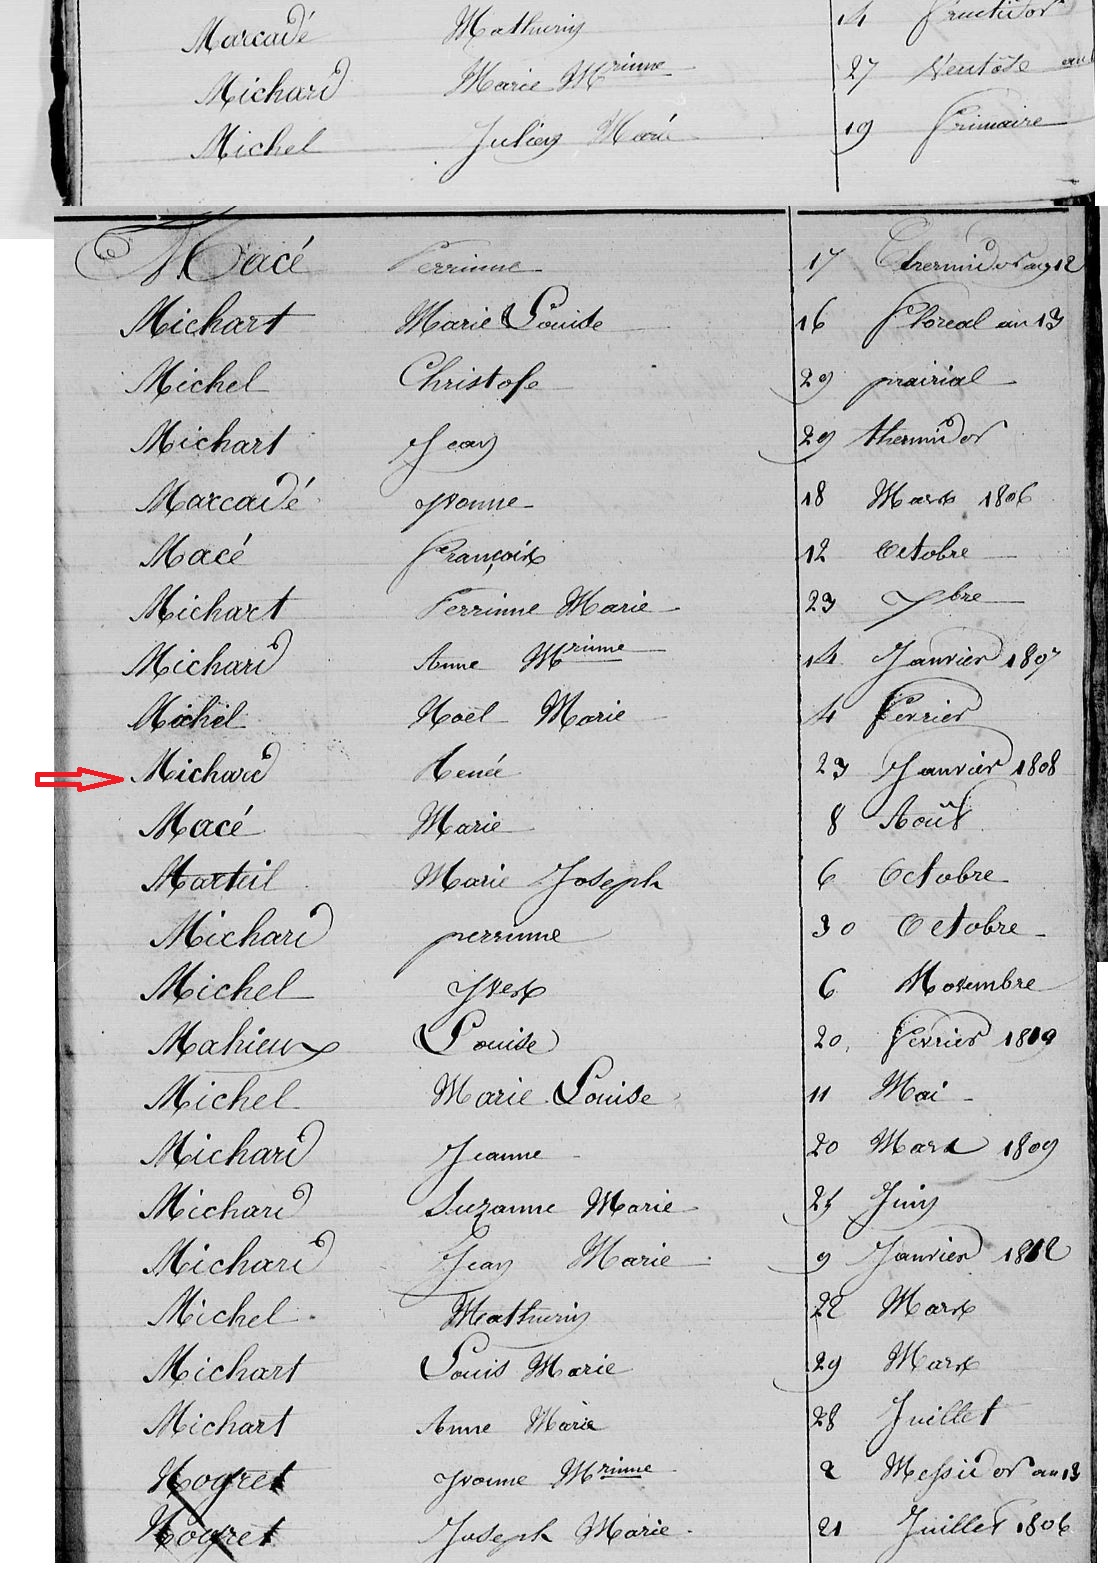 Marcadé Mathurin 14 fructidor
Michard Marie Mrinne 27 Ventôse an
Michel Julien Marie 19 frimaire
Macé Perrinne 17 thermidor an 12
Michart Marie Louise 16 floreal an 13
Michel Christofe 29 prairial
Michart Jean 29 thermidor
Marcadé yvonne 18 Mars 1806
Macé françois 12 Octobre
Michart Perrinne Marie 23 7bre
Michard Anne Mrinne 14 Janvier 1807
Michel Noël Marie 4 fevrier
Michard Renée 23 Janvier 1808
Macé Marie 8 Août
Marteil Marie Joseph 6 Octobre
Michard perrinne 30 Octobre
Michel yves 6 Novembre
Mahieux Louise 20 fevrier 1809
Michel Marie Louise 11 Mai
Michard Jeanne 20 Mars 1809
Michard Suzanne Marie 25 Juin
Michard Jean Marie 9 Janvier 1812
Michel Mathurin 22 Mars
Michart Louis Marie 29 Mars
Michart Anne Marie 28 Juillet
Nogret yvonne Mrinne 2 Messidor an 13
Nogret Joseph Marie 21 Juillet 1806